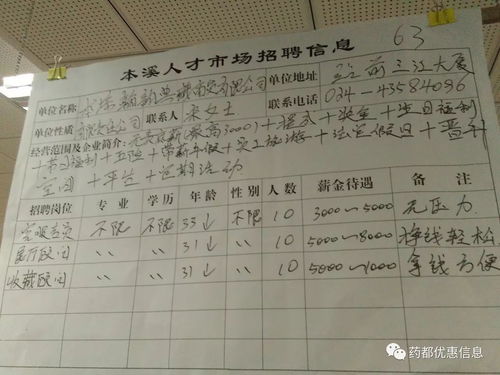 63
本溪人才市场招聘信息
单位名称 本溪 商贸有限公司 单位地址 站前三江大厦
单位性质 有限公司 联系人 宋女士 联系电话 024-43584096
经营范围及企业简介: 无责底薪(最高3000)+提成+奖金+生日福利
+节日福利+五险+带薪年假+员工旅游+法定假日+晋升
空间
招聘岗位 专业 学历 年龄 性别 人数 薪金待遇 备注
客服专员 不限 不限 35↓ 不限 10 3000～5000 无压力
顾问 〃 〃 31↓ 〃 10 5000～8000 挣钱轻松
收藏顾问 〃 〃 31↓ 〃 10 5000～1000 拿钱方便
药都优惠信息